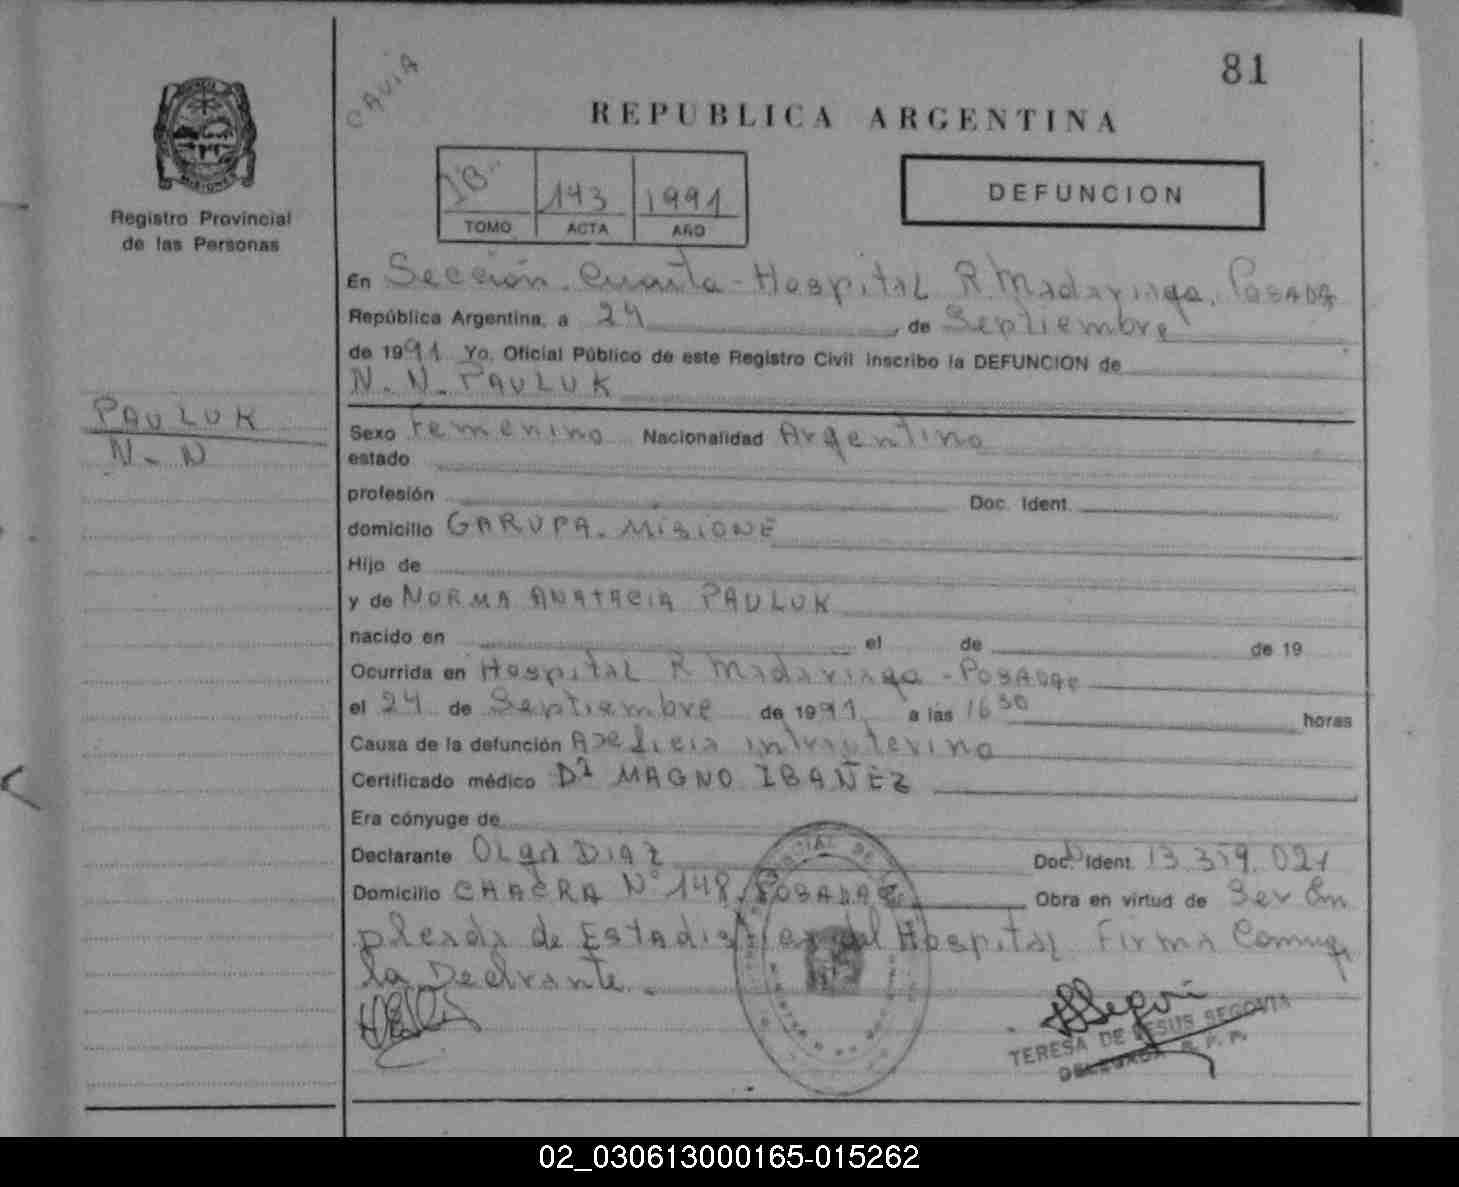 81
CAVIA
REPUBLICA ARGENTINA
MISIONES
Registro Provincial
de las Personas
DEFUNCION
143 1991
TOMO ACTA AÑO
En Sección Cuarta - Hospital R. Madariaga, Posadas
República Argentina, a 24 de Septiembre
de 1991 Yo, Oficial Público de este Registro Civil inscribo la DEFUNCION de
N. N. PAULUK
PAULUK
N - N
Sexo Femenino Nacionalidad Argentina
estado
profesión Doc. Ident.
domicilio GARUPA. MISIONE
Hijo de
y de NORMA ANATACIA PAULUK
nacido en el de de 19
Ocurrida en Hospital R Madariaga - Posadas
el 24 de Septiembre de 1991 a las 16 30 horas
Causa de la defunción intrauterina
Certificado médico MAGNO IBAÑEZ
Era cónyuge de
Declarante Olga DIAZ Doc. Ident. 13.359.021
Domicilio CHACRA N° 148, POSADAS Obra en virtud de Ser Em
pleada de Estadistica del Hospital Firma Conmigo
la Declrante.
TERESA DE JESUS SEGOVIA
DELEGADA R. P. P.
02_030613000165-015262